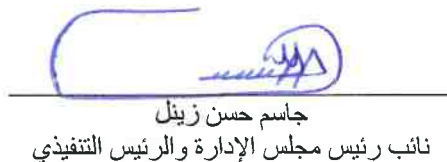 جاسم حسن زينل
نائب رئيس مجلس الإدارة والرئيس التنفيذي